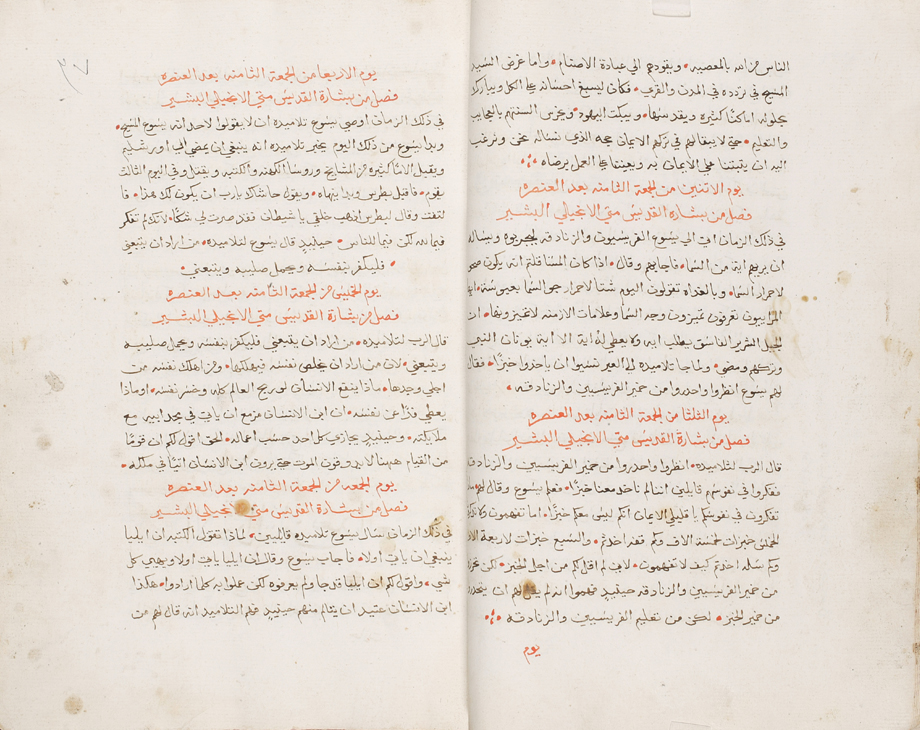 الناس من الله بالمعصيه • ويقودهم الي عبادة الاصنام • واما غرض السيد
المسيح في تردده في المدن والقري • فكان ليسبغ احسانه علي الكل ويبارك
بحلوله اماكنًا كثيرة ويقدسها • ويبكت اليهود • ويخزي السنتهم بالعجايب
والتعليم • حتي لا يبقا لهم في تركهم الايمان حجه الذي نساله نحن ونرغب
اليه ان يثبتنا علي الايمان به ويعيننا علي العمل برضاه
يوم الاتنين من الجمعة الثامنه بعد العنصره
فصل من بشارة القديس متي الانجيلي البشير
في ذلك الزمان اتي الي يسوع الفريسيون والزنادقه ليجربوه وسالوه
ان يريهم اية من السما • فاجابهم وقال • اذا كان المسا قلتم انه يكون صحو
لاحمرار السما • وبالغداه تقولون اليوم شتا لاحمرار جو السما بعبوسة • ايها
المراييون تعرفون تميزون وجه السما وعلامات الازمنه لا تميزونها • ان
الجيل الشرير الفاسق يطلب ايه ولا يعطي له اية الا اية يونان النبي
وتركهم ومضي • ولما جا تلاميذه الي العبر نسيوا ان ياخدوا خبزًا • فقال
لهم يسوع انظروا واحدروا من خمير الفريسيين والزنادقه •
يوم الثلثا من الجمعة الثامنه بعد العنصره
فصل من بشارة القديس متي الانجيلي البشير
قال الرب لتلاميذه • انظروا واحدروا من خمير الفريسيين والزنادقه
ففكروا في نفوسهم قايلين اننا لم ناخد معنا خبزًا • فعلم يسوع وقال لهم
تفكرون في نفوسكم يا قليلي الايمان انكم ليس معكم خبزًا • اما تفهمون ولا تذكرون
الخمس خبزات لخمسة الاف وكم قفه اخدتم • والسبع خبزات لاربعة الاف
وكم سله اخدتم كيف لا تفهمون • لاني لم اقل لكم من اجل الخبز • لكن تحرزوا
من خمير الفريسيين والزنادقه حينيد فهموا انه لم يقل لهم ان يتحدروا
من خمير الخبز • لكن من تعليم الفريسيين والزنادقه
يوم
يوم الاربعا من الجمعة الثامنه بعد العنصره
فصل من بشارة القديس متي الانجيلي البشير
في ذلك الزمان اوصي يسوع تلاميذه ان لا يقولوا لاحد انه يسوع المسيح •
وبدا يسوع من ذلك اليوم يخبر تلاميذه انه ينبغي ان يمضي الي اورشليم
ويقبل الامًا كثيره من المشايخ وروسا الكهنه والكتبه ويقتل وفي اليوم الثالث
يقوم • فاقبل بطرس وبدا ينهاه • ويقول حاشاك يارب ان يكون لك هذا • فا
لتفت وقال لبطرس اذهب خلفي يا شيطان فقد صرت لي شكًا • لانك لم تفكر
فيما لله لكن فيما للناس • حينيد قال يسوع لتلاميذه • من اراد ان يتبعني
• فليكفر بنفسه ويحمل صليبه ويتبعني •
يوم الخميس من الجمعة الثامنه بعد العنصره
فصل من بشارة القديس متي الانجيلي البشير
قال الرب لتلاميذه • من اراد ان يتبعني فليكفر بنفسه ويحمل صليبه
ويتبعني • لان من اراد ان يخلص نفسه فيهلكها • ومن اهلك نفسه من
اجلي وجدها • ماذا ينفع الانسان لو ربح العالم كله وخسر نفسه • او ماذا
يعطي فدًا عن نفسه • ان ابن الانسان مزمع ان ياتي في مجد ابيه مع
ملايكته • وحينيد يجازي كل احد حسب اعماله • الحق اقول لكم ان قومًا
من القيام ههنا لا يدوقون الموت حتي يرون ابن الانسان اتيًا في ملكه •
يوم الجمعه من الجمعة الثامنه بعد العنصره
فصل من بشارة القديس متي الانجيلي البشير
في ذلك الزمان سال يسوع تلاميذه قايلين • لماذا تقول الكتبه ان ايليا
ينبغي ان ياتي اولا • فاجاب يسوع وقال ان ايليا ياتي اولا ويهيي كل
شي • واقول لكم ان ايليا قد جا ولم يعرفوه لكن عملوا به كلما ارادوا • هكذا
ابن الانسان عتيد ان يتالم منهم حينيد فهم التلاميد انه قال لهم عن